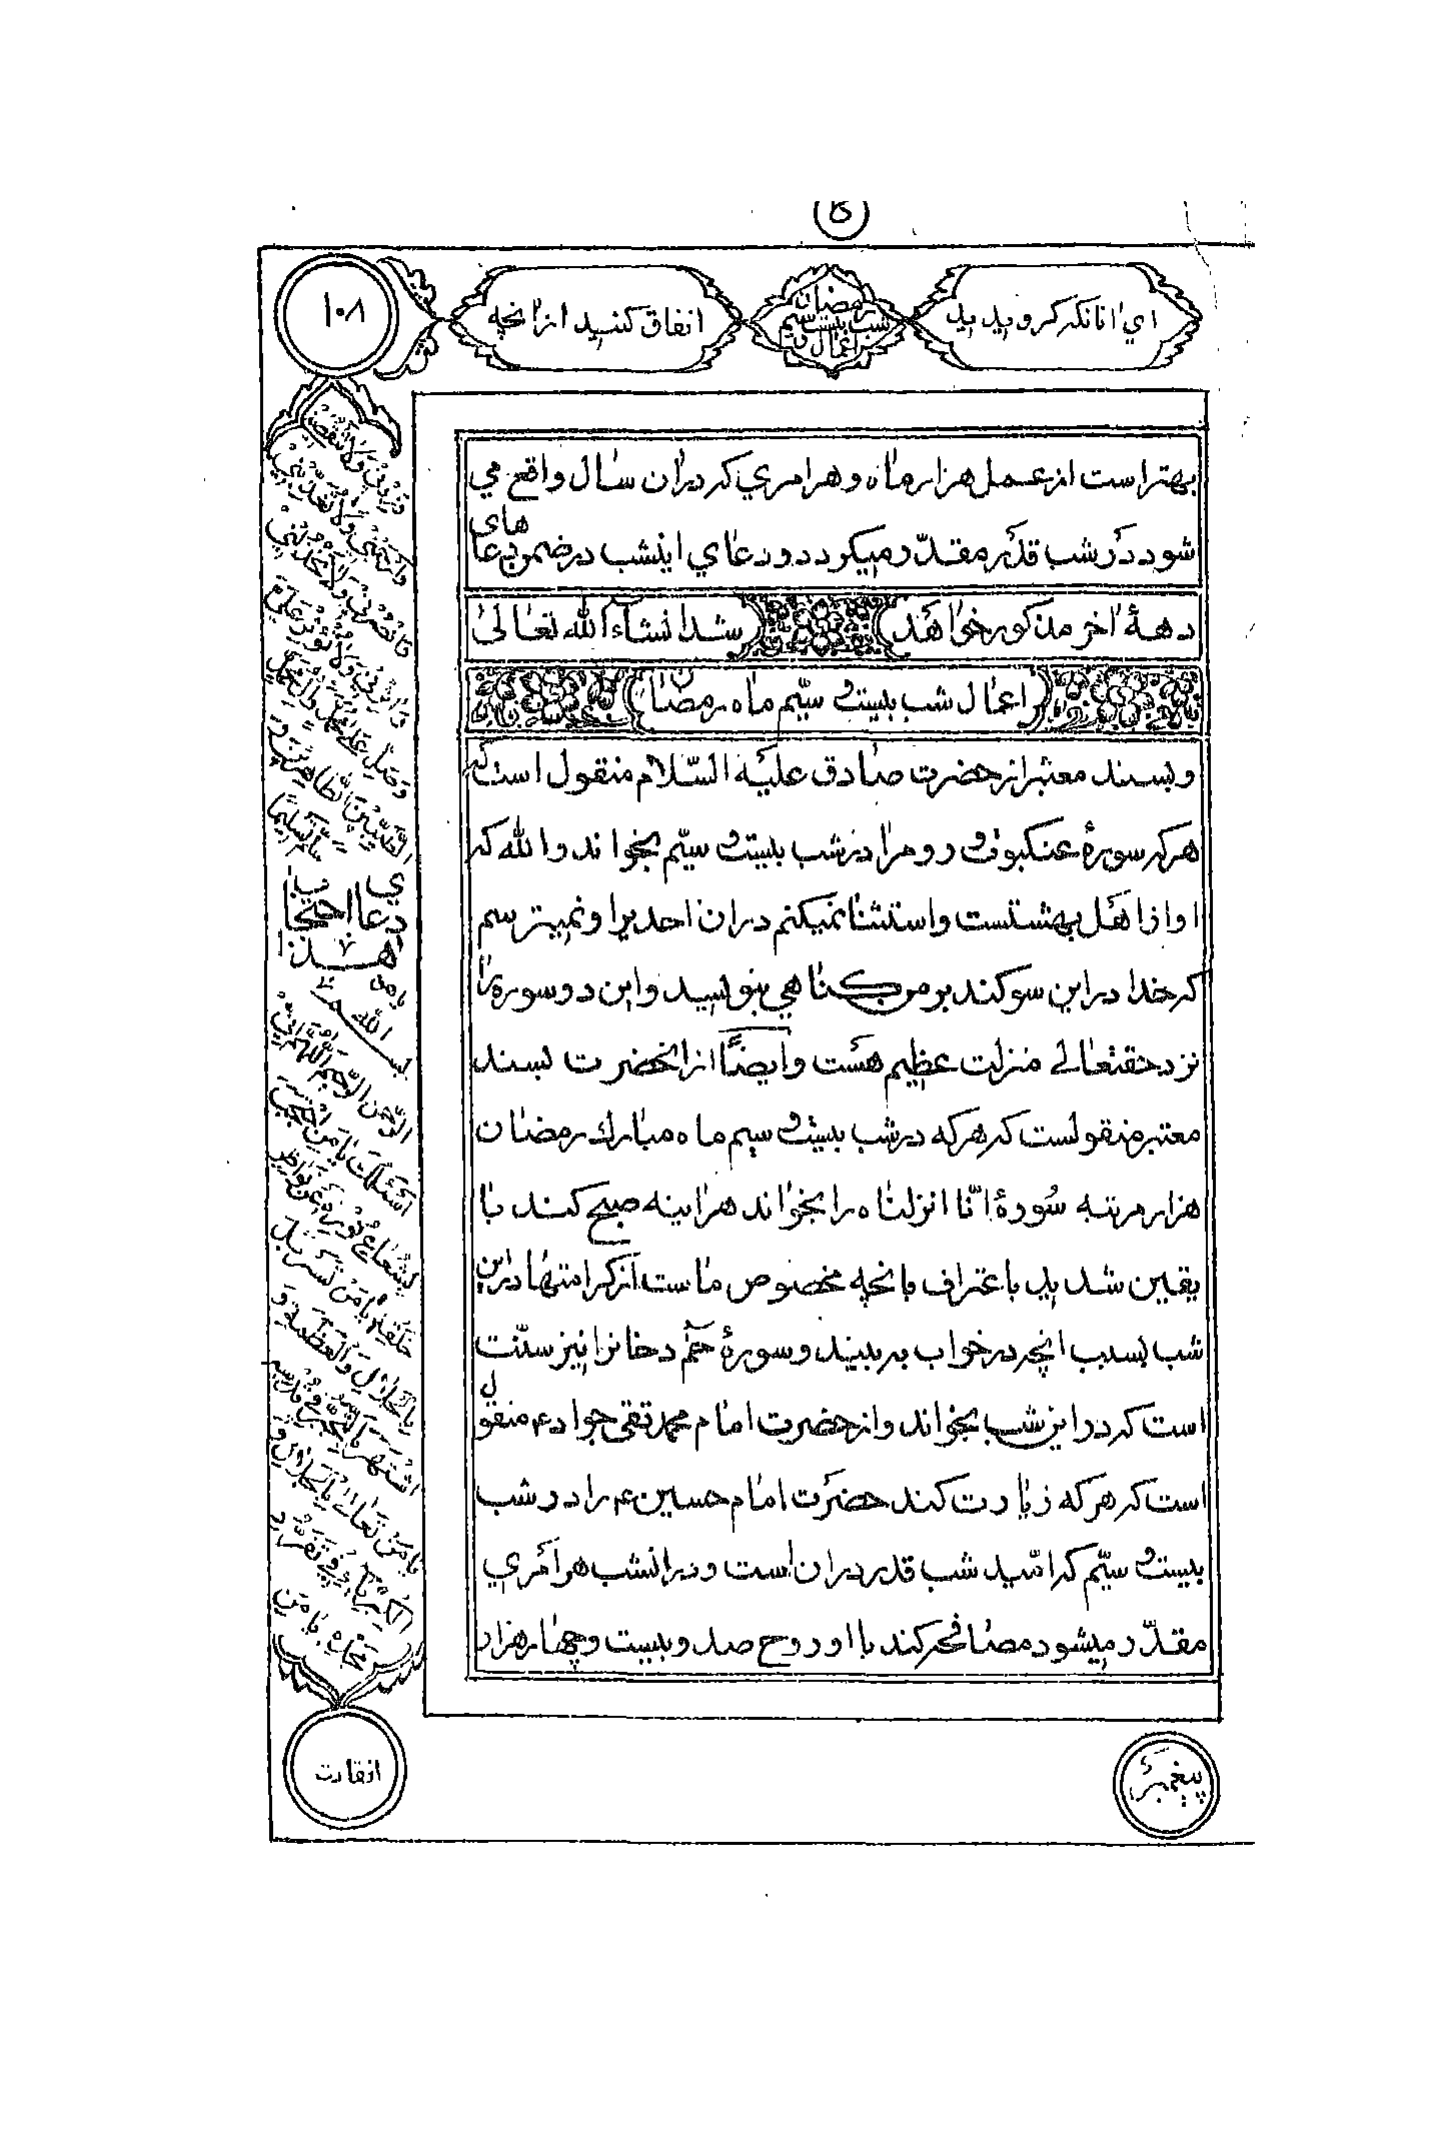 ای آنانکه گرویدید
رمضان
شب بیست و سیم
اعمال
انفاق کنید از آنچه
۱۰۸
بهتر است از عمل هزار ماه و هر امری که در آن سال واقع می
شود در شب قدر مقدّر میگردد و دعای اینشب در ضمن دعاهای
دههٔ آخر مذکور خواهد شد انشاء الله تعالی
اعمال شب بیست و سیّم ماه رمضان
و بسند معتبر از حضرت صادق علیه السّلام منقول است که
هر که سورهٔ عنکبوت و روم را در شب بیست و سیّم بخواند والله که
او از اهل بهشتست و استثنا نمیکنم در آن احدیرا و نمیترسم
که خدا در این سوکند بر من گناهی بنویسد و این دو سوره را
نزد حقتعالی منزلت عظیم هست و ایضًا از انحضرت بسند
معتبر منقولست که هر که در شب بیست و سیم ماه مبارک رمضان
هزار مرتبه سورهٔ انّا انزلناه را بخواند هراینه صبح کند با
یقین شدید باعتراف بانچه مخصوص ماست از کرامتها در این
شب بسبب انچه در خواب به بیند و سورهٔ حٓم دخانرا نیز سنّت
است که در این شب بخواند و از حضرت امام محمد تقی جواد ع منقول
است که هر که زیارت کند حضرت امام حسین ع را در شب
بیست و سیّم که امّید شب قدر در ان است و در انشب هر امری
مقدّر میشود مصافحه کند با او روح صد و بیست و چهار هزار
وَزِدْنِی وَلاٰ تَنْقُصْنِی
وَارْحَمْنِی وَلاٰ تُعَذِّبْنِی
وَانْصُرْنِی وَلاٰ تَخْذُلْنِی
وَاٰثِرْنِی وَلاٰ تُؤْثِرْ عَلَیَّ
وَصَلِّ عَلٰی مُحَمَّدٍ وَاٰلِ مُحَمَّدٍ
الطَّیِّبِینَ الطَّاهِرِینَ وَ
سَلَّمَ تَسْلِیمًا
دعای احتجاب
هذا
بسم الله
الرَّحْمٰنِ الرَّحِیمِ اَللّٰهُمَّ اِنِّی
اَسْئَلُکَ یٰا مَنِ احْتَجَبَ
بِشُعٰاعِ نُورِهِ عَنْ نَوٰاظِرِ
خَلْقِهِ یٰا مَنْ تَسَرْبَلَ
بِالْجَلاٰلِ وَالْعَظَمَةِ وَ
اشْتَهَرَ بِالتَّجَبُّرِ فِی قُدْسِهِ
یٰا مَنْ تَعٰالٰی بِالْجَلاٰلِ وَ
الْکِبْرِیٰاءِ فِی تَفَرُّدِ
مَجْدِهِ یٰا مَنِ
انقادت
پیغمبر